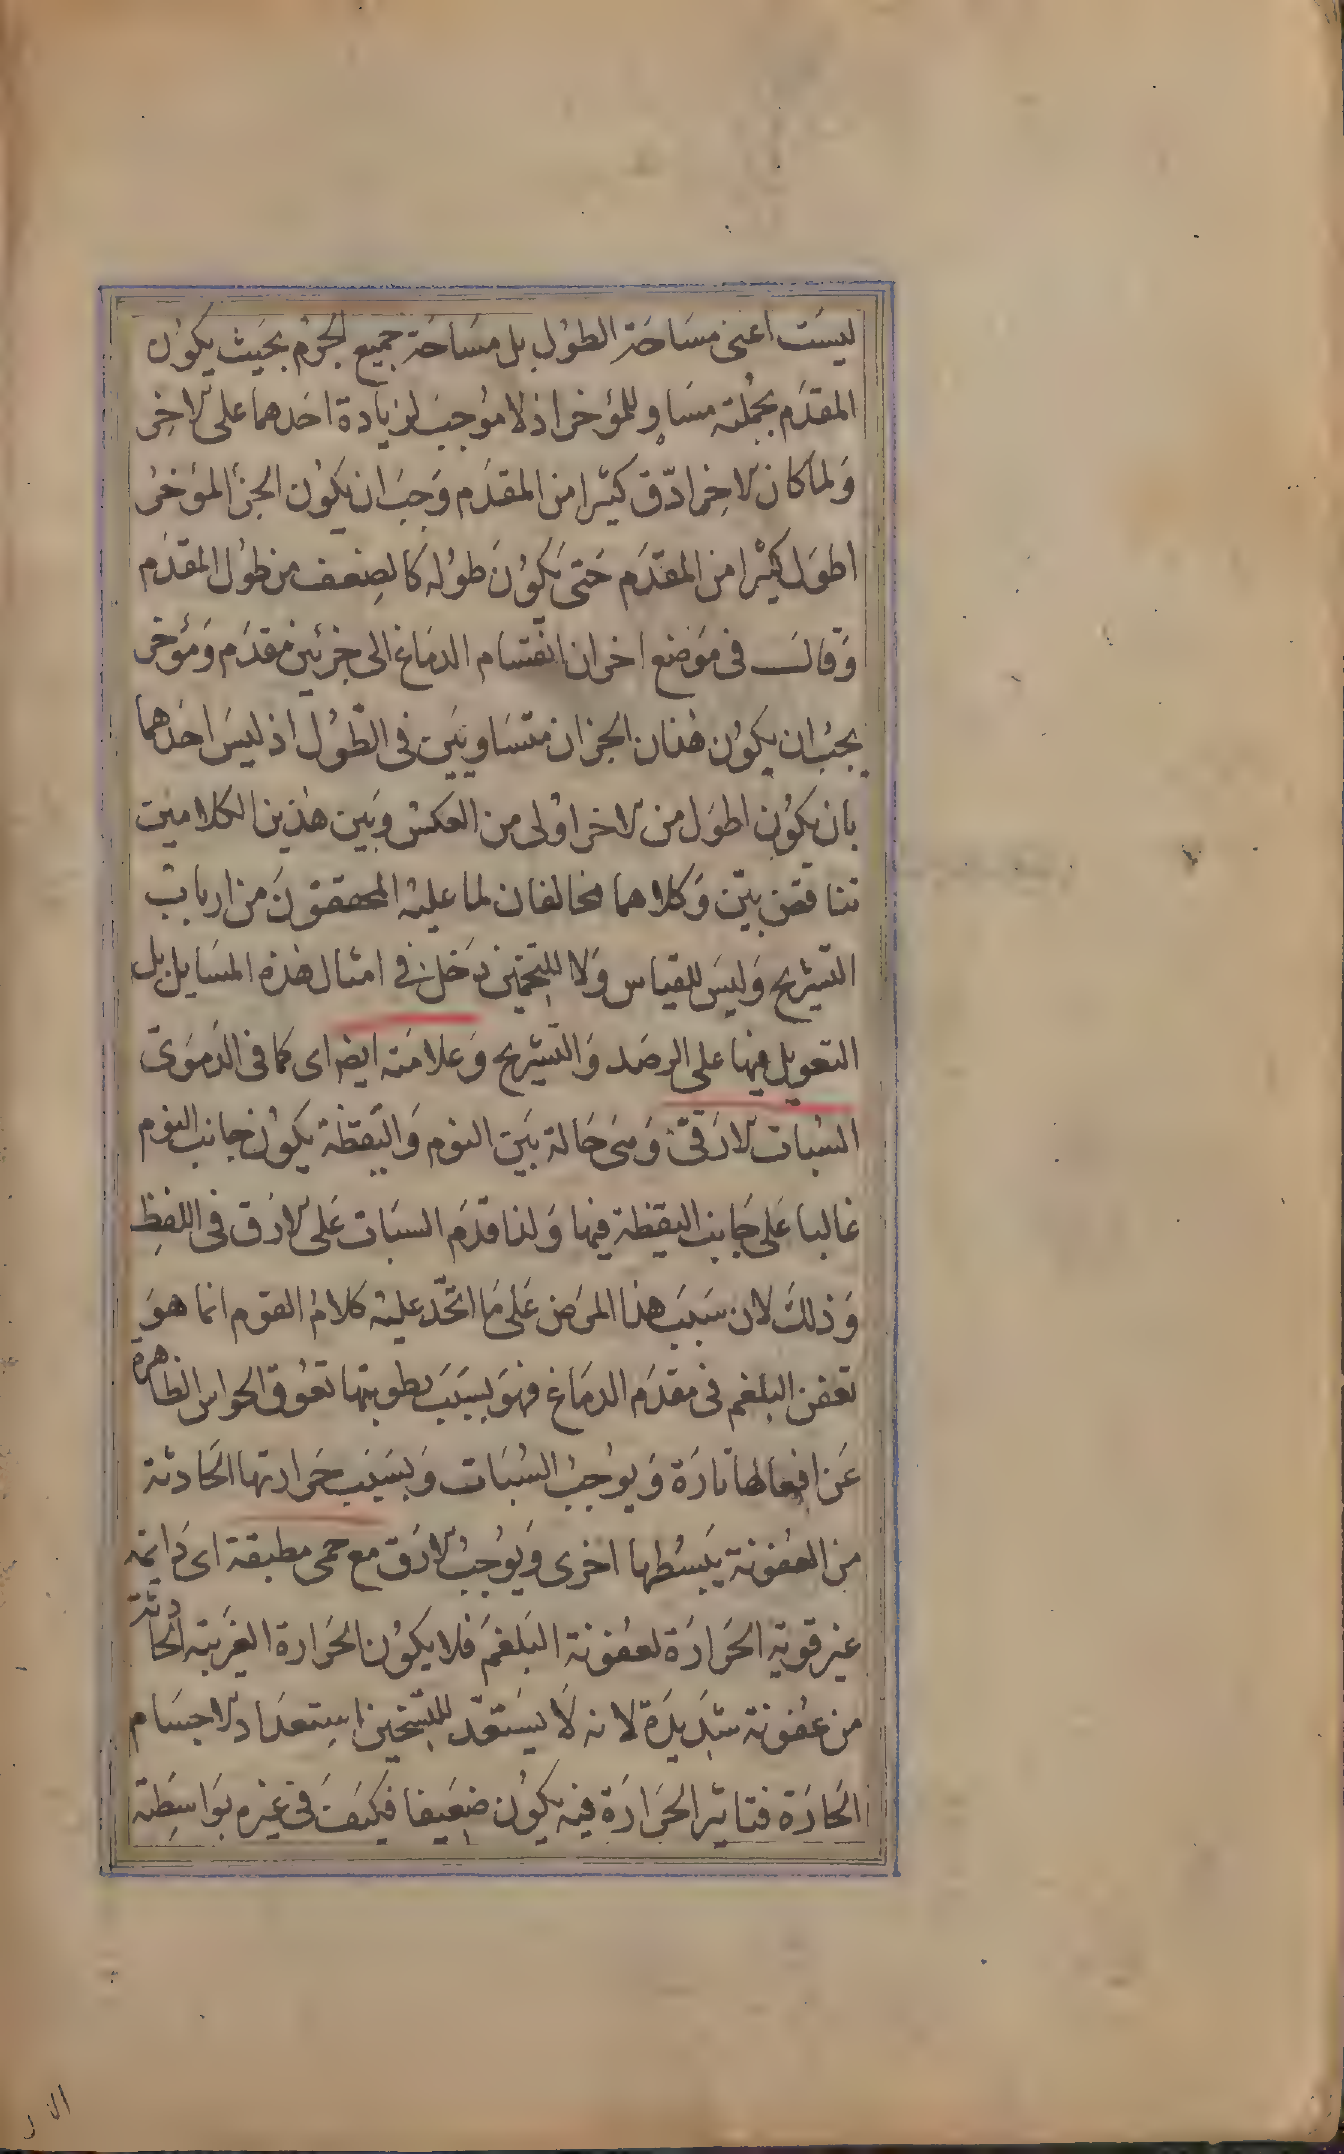 ليسَت اعنى مسَاحَة الطوُل بل مسَاحَة جميع الجرُم بحَيث يكوُن
المقدَم بجُملته مسَاوٍ للمؤخر اذ لا موُجبَ لزيادة احَدهما على الاخِر
وَلما كان الاخِر ادّق كثيرا من المقدَم وَجبَ ان يكوُن الجزأ المؤخرُ
اطوَل كثيْرا من المقدَّم حَتى يَكوُنَ طوُله كالضِعف من طوُل المقدَم
وَقالَـــ فى موَضع اخر ان انقسَام الدمَاغ الى جزئين مقدَم وَمؤخر
يجبُ ان يكوُن هٰذان الجزءان متسَاويَيَن فى الطّوُل اذ ليسَ احَدهما
بان يكوُن اطوَل من الاخر اوُلى من العكسْ وَبَين هٰذين الكلامينَ
تناقض بيّن وَكلاهما مخالفان لما عليْه المحققوُنَ من ارباب
التشريح وَليسَ للقياس وَلا للتخمين دَخل فى امثال هٰذه المسَايل بل
التعويل فيها على الرصَد وَالتشريح وَعلامَته ايضا اى كما فى الدَموَىّ
السُبات الارَقىّ وَهىَ حَالة بَين النوم وَاليَقظة يكوُن جَانب النوم
غالبا عَلى جَانب اليقظة فيها وَلذا قدَم السبَات عَلى الارَق فى اللفظِ
وَذلكَ لان سَببَ هٰذا المرَض عَلى مَا اتحَّد عليْه كلامُ القوم انما هوَ
تعفن البلغم فى مقدَم الدمَاغ فهوَ بسَببَ رطوبتها تعُوق الحواس الظاهرة
عَن افعالها تارَة وَيوُجبُ السُبَات وَبسَببَ حَرارتها الحَادثة
من العفُونة يبَسُطها اخرى وَيوُجبُ الارَق مع حمى مطبقة اى دَائمة
غير قوية الحَرارَة لعفُونة البَلغمَ فلا يكوُن الحَرارة الغرَيبة الحَادثة
من عفُونة شدَيدَة لانه لَا يسَتعدّ للتسّخين استِعدَاد الاجسَام
الحَارَة فتاثير الحَرارَة فيه يكوُن ضَعيفا فكيَفَ فى غيره بوَاسِطَة